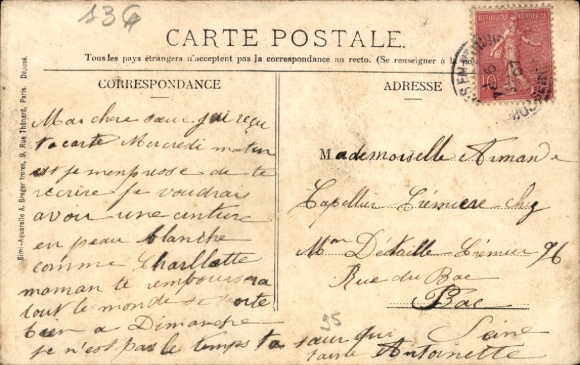 136
CARTE POSTALE.
Tous les pays étrangers n'acceptent pas la correspondance au recto. (Se renseigner à la
CORRESPONDANCE
ADRESSE
Simi-Aquarelle A. Breger frères, 9, Rue Thénard, Paris. Déposé.
Ma chere sœur jai reçu
ta carte Mercredi matin
et je menpresse de te
recrire je voudrais
avoir une cinture
en peau blanche
comme Charllotte
maman te remboursera
tout le monde se porte
bien a Dimanche
je n'est pas le temps ta sœur qui
taime Antoinette
Mademoiselle Armande
Capellier Crémière chez
Mme Détaille Crémier 76
Rue du Bac
Bac
Seine
25
REPUBLIQUE FRANÇAISE
10